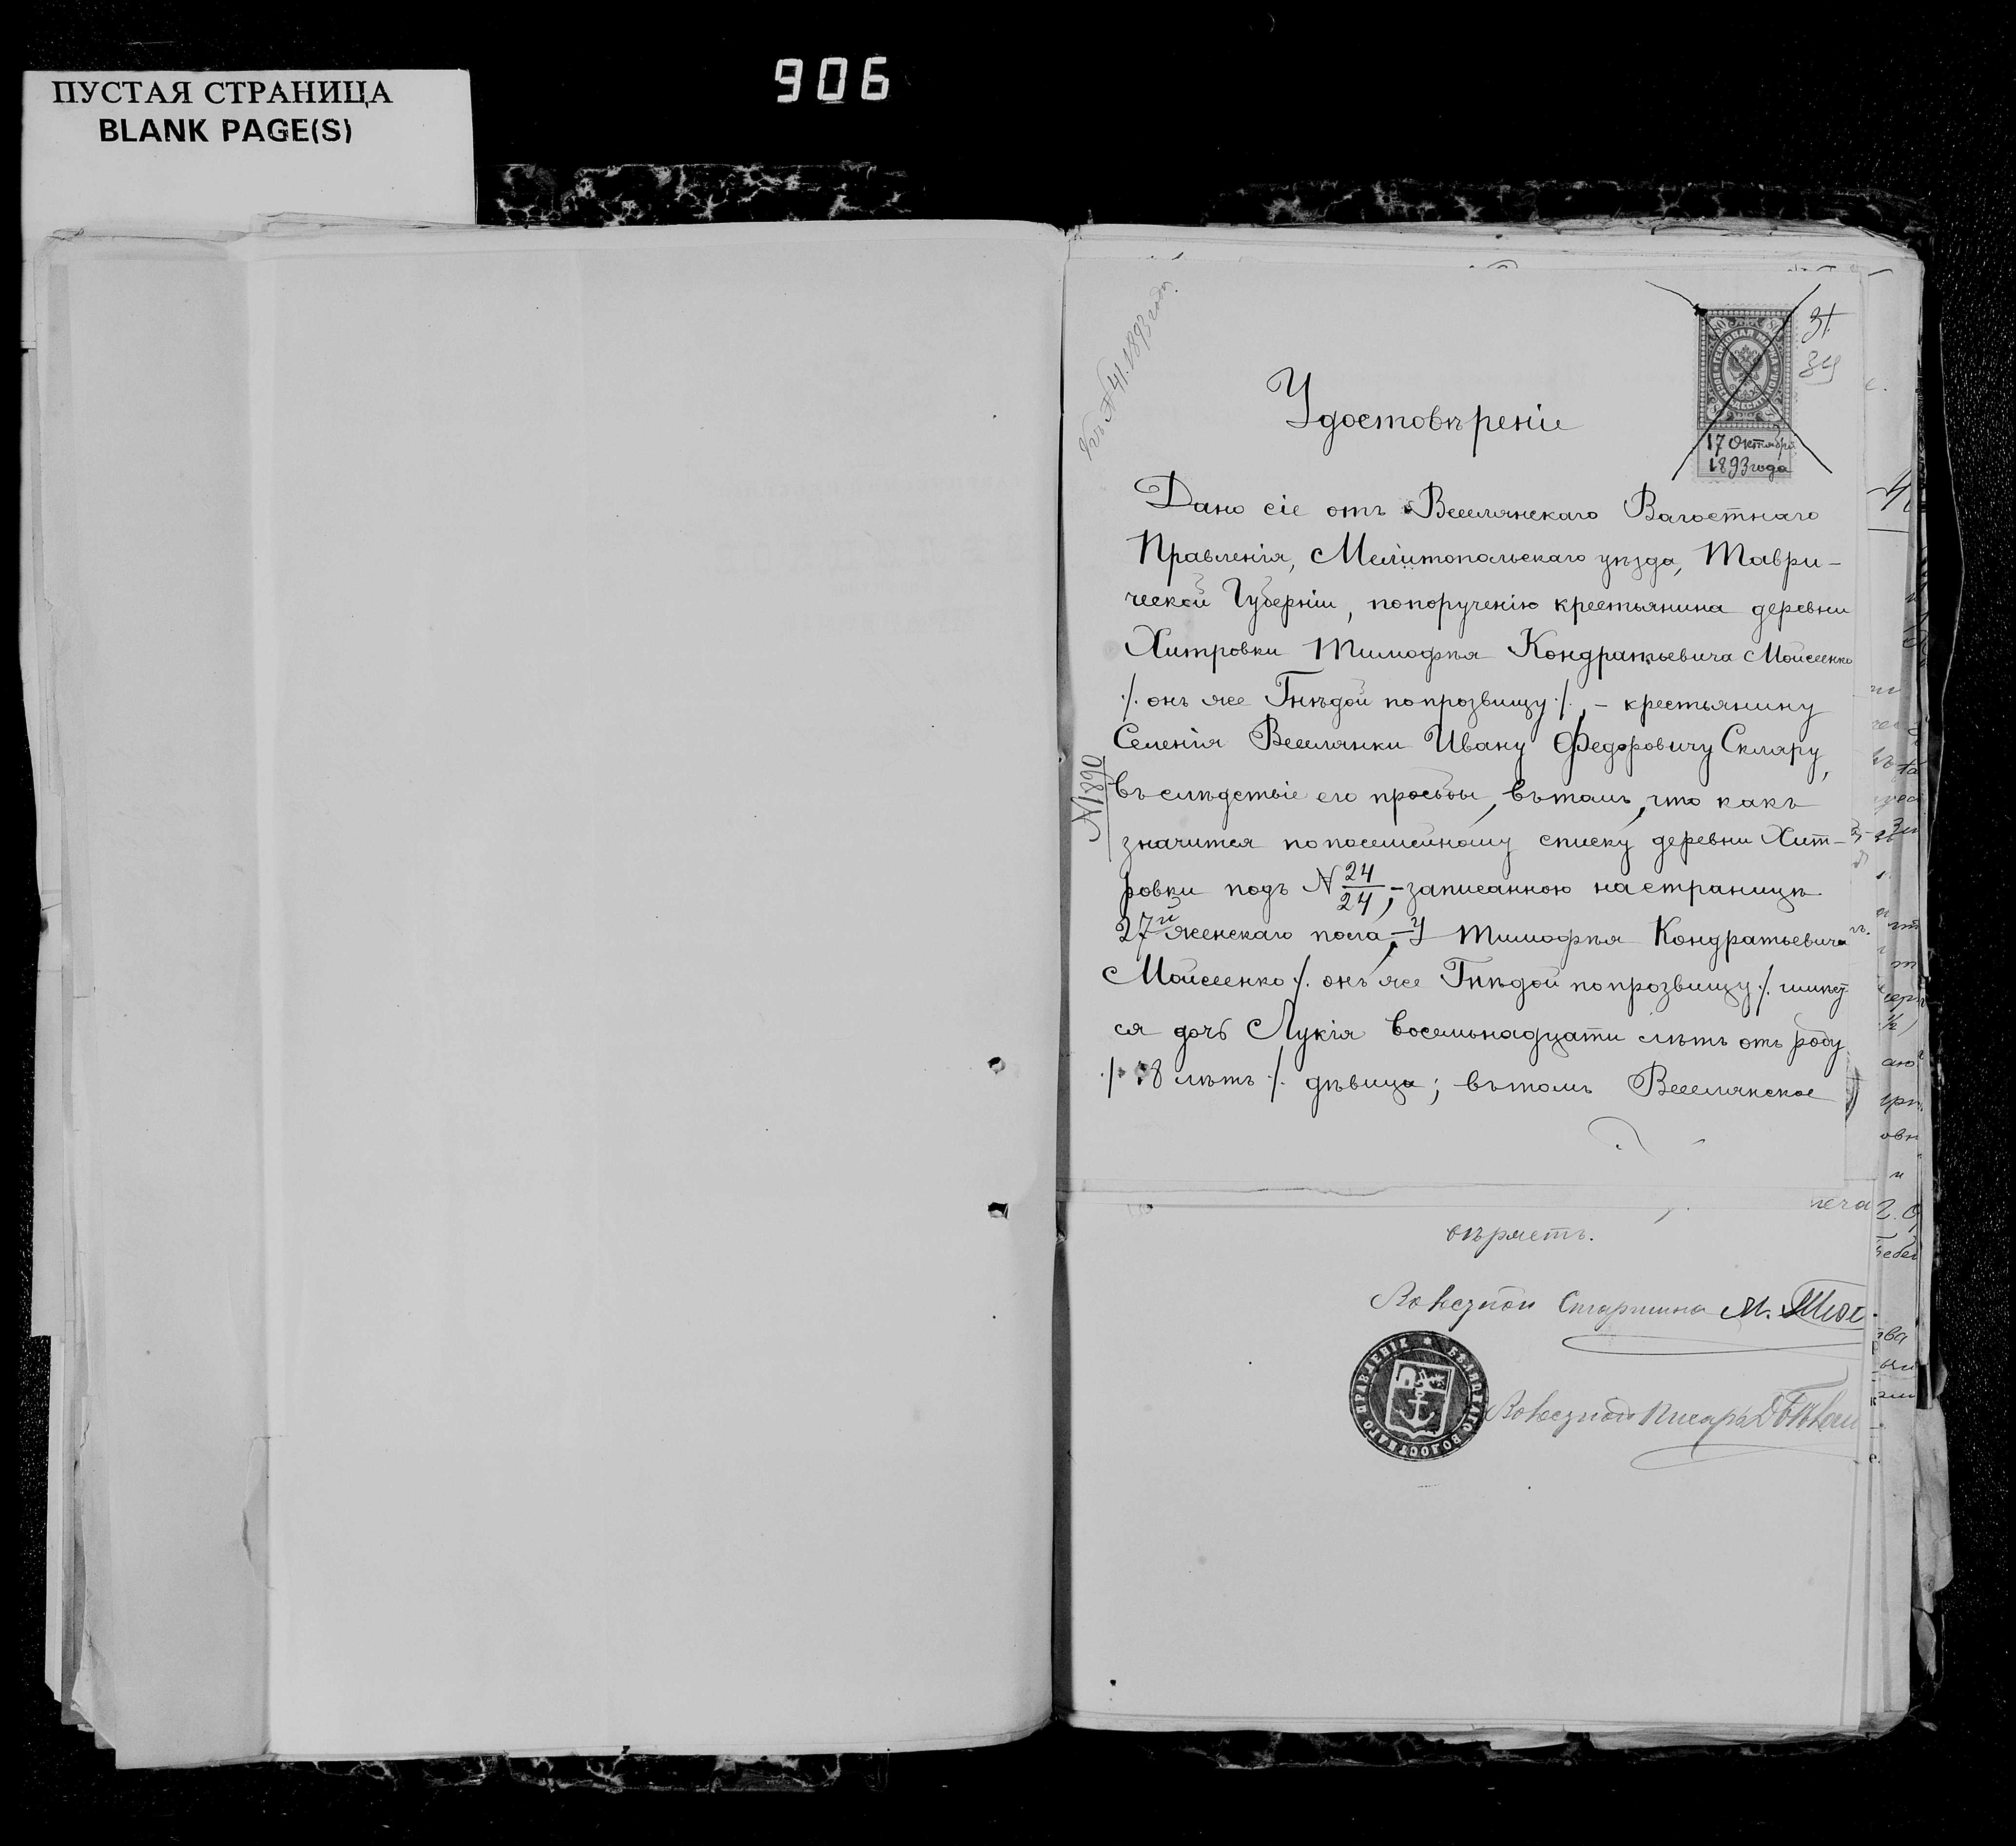 906
ПУСТАЯ СТРАНИЦА
BLANK PAGE(S)
Къ № 41. 1893 году
31
34
17 Октября
1893 года
Удостовѣреніе
Дано сіе отъ Веселянскаго Валостнаго
Правленія, Мелитопольскаго уѣзда, Таври-
ческой Губерніи, попорученію крестьянина деревни
Хитровки Тимофѣя Кондратьевича Моисеенко
/. онъ же Гнѣдой попрозвищу /., – крестьянину
Селенія Веселянки Ивану Федоровичу Скляру,
въ слѣдствіе его просьбы, вътомъ, что какъ
№ 1890
значится попосемейному списку деревни Хит-
ровки подъ № 24/24, – записанною настраницѣ
27й женскаго пола, – У Тимофѣя Кондратьевича
Моисеенко /. онъ же Гнѣдой попрозвищу /. имѣет
ся дочь Лукія восемьнадцати лѣтъ отъ роду
/. 18 лѣтъ /. дѣвица; вътомъ Веселянское
печа
вѣряетъ.
Старшина М.
Писарь
ПРАВЛЕНІЕ ВОЛОСТНАГО